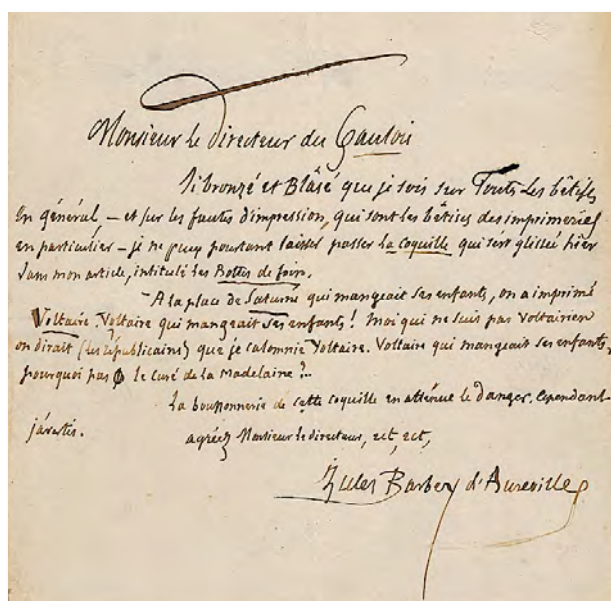 Monsieur le directeur du Gaulois
Si bronzé et Blâsé que je sois sur Touts les bêtises
En général, — et sur les fautes d'impression, qui sont les bêtises des imprimeries
en particulier — je ne peux pourtant laisser passer la coquille qui s'est glissée hier
dans mon article, intitulé les Bottes de foin.
A la place de Saturne qui mangeait ses enfants, on a imprimé
Voltaire. Voltaire qui mangeait ses enfants! moi qui ne suis pas Voltairien
on dirait (les républicains) que je calomnie Voltaire. Voltaire qui mangeait ses enfants,
pourquoi pas le curé de la Madelaine?..
La bouffonnerie de cette coquille en atténue le danger. Cependant
j'avertis.
agréez Monsieur le directeur, ect, ect,
Jules Barbey d'Aurevilly